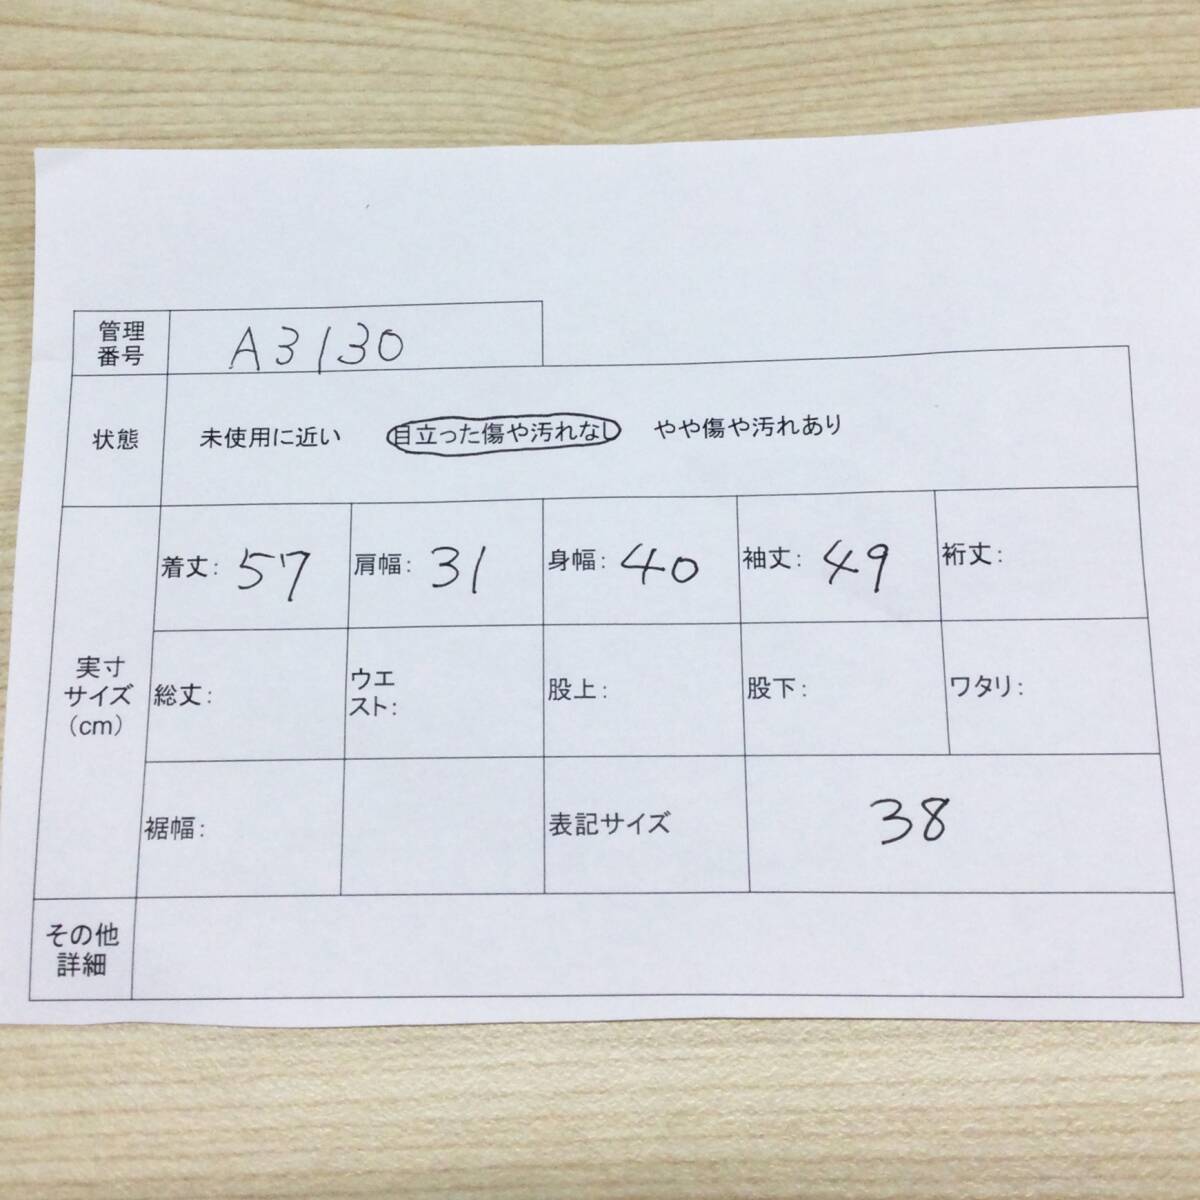 管理
番号
A3130
状態
未使用に近い 目立った傷や汚れなし やや傷や汚れあり
実寸
サイズ
(cm)
着丈: 57
肩幅: 31
身幅: 40
袖丈: 49
裄丈:
総丈:
ウエ
スト:
股上:
股下:
ワタリ:
裾幅:
表記サイズ
38
その他
詳細